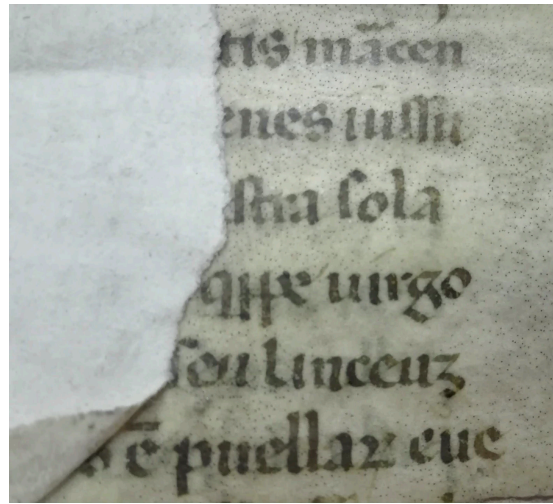 tis mācen
enes iussu
stra sola
uirgo
seu linceuʒ
ē puellaꝝ eue